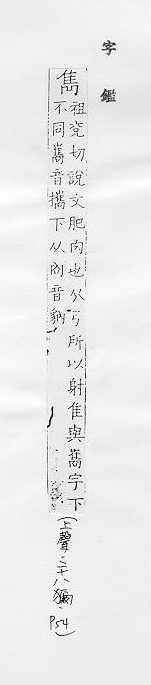 字鑑
雋
祖兖切說文肥肉也从弓所以射隹與雟字下
不同雟音攜下从㕯音豽
(上聲‧二十八獮‧P54)